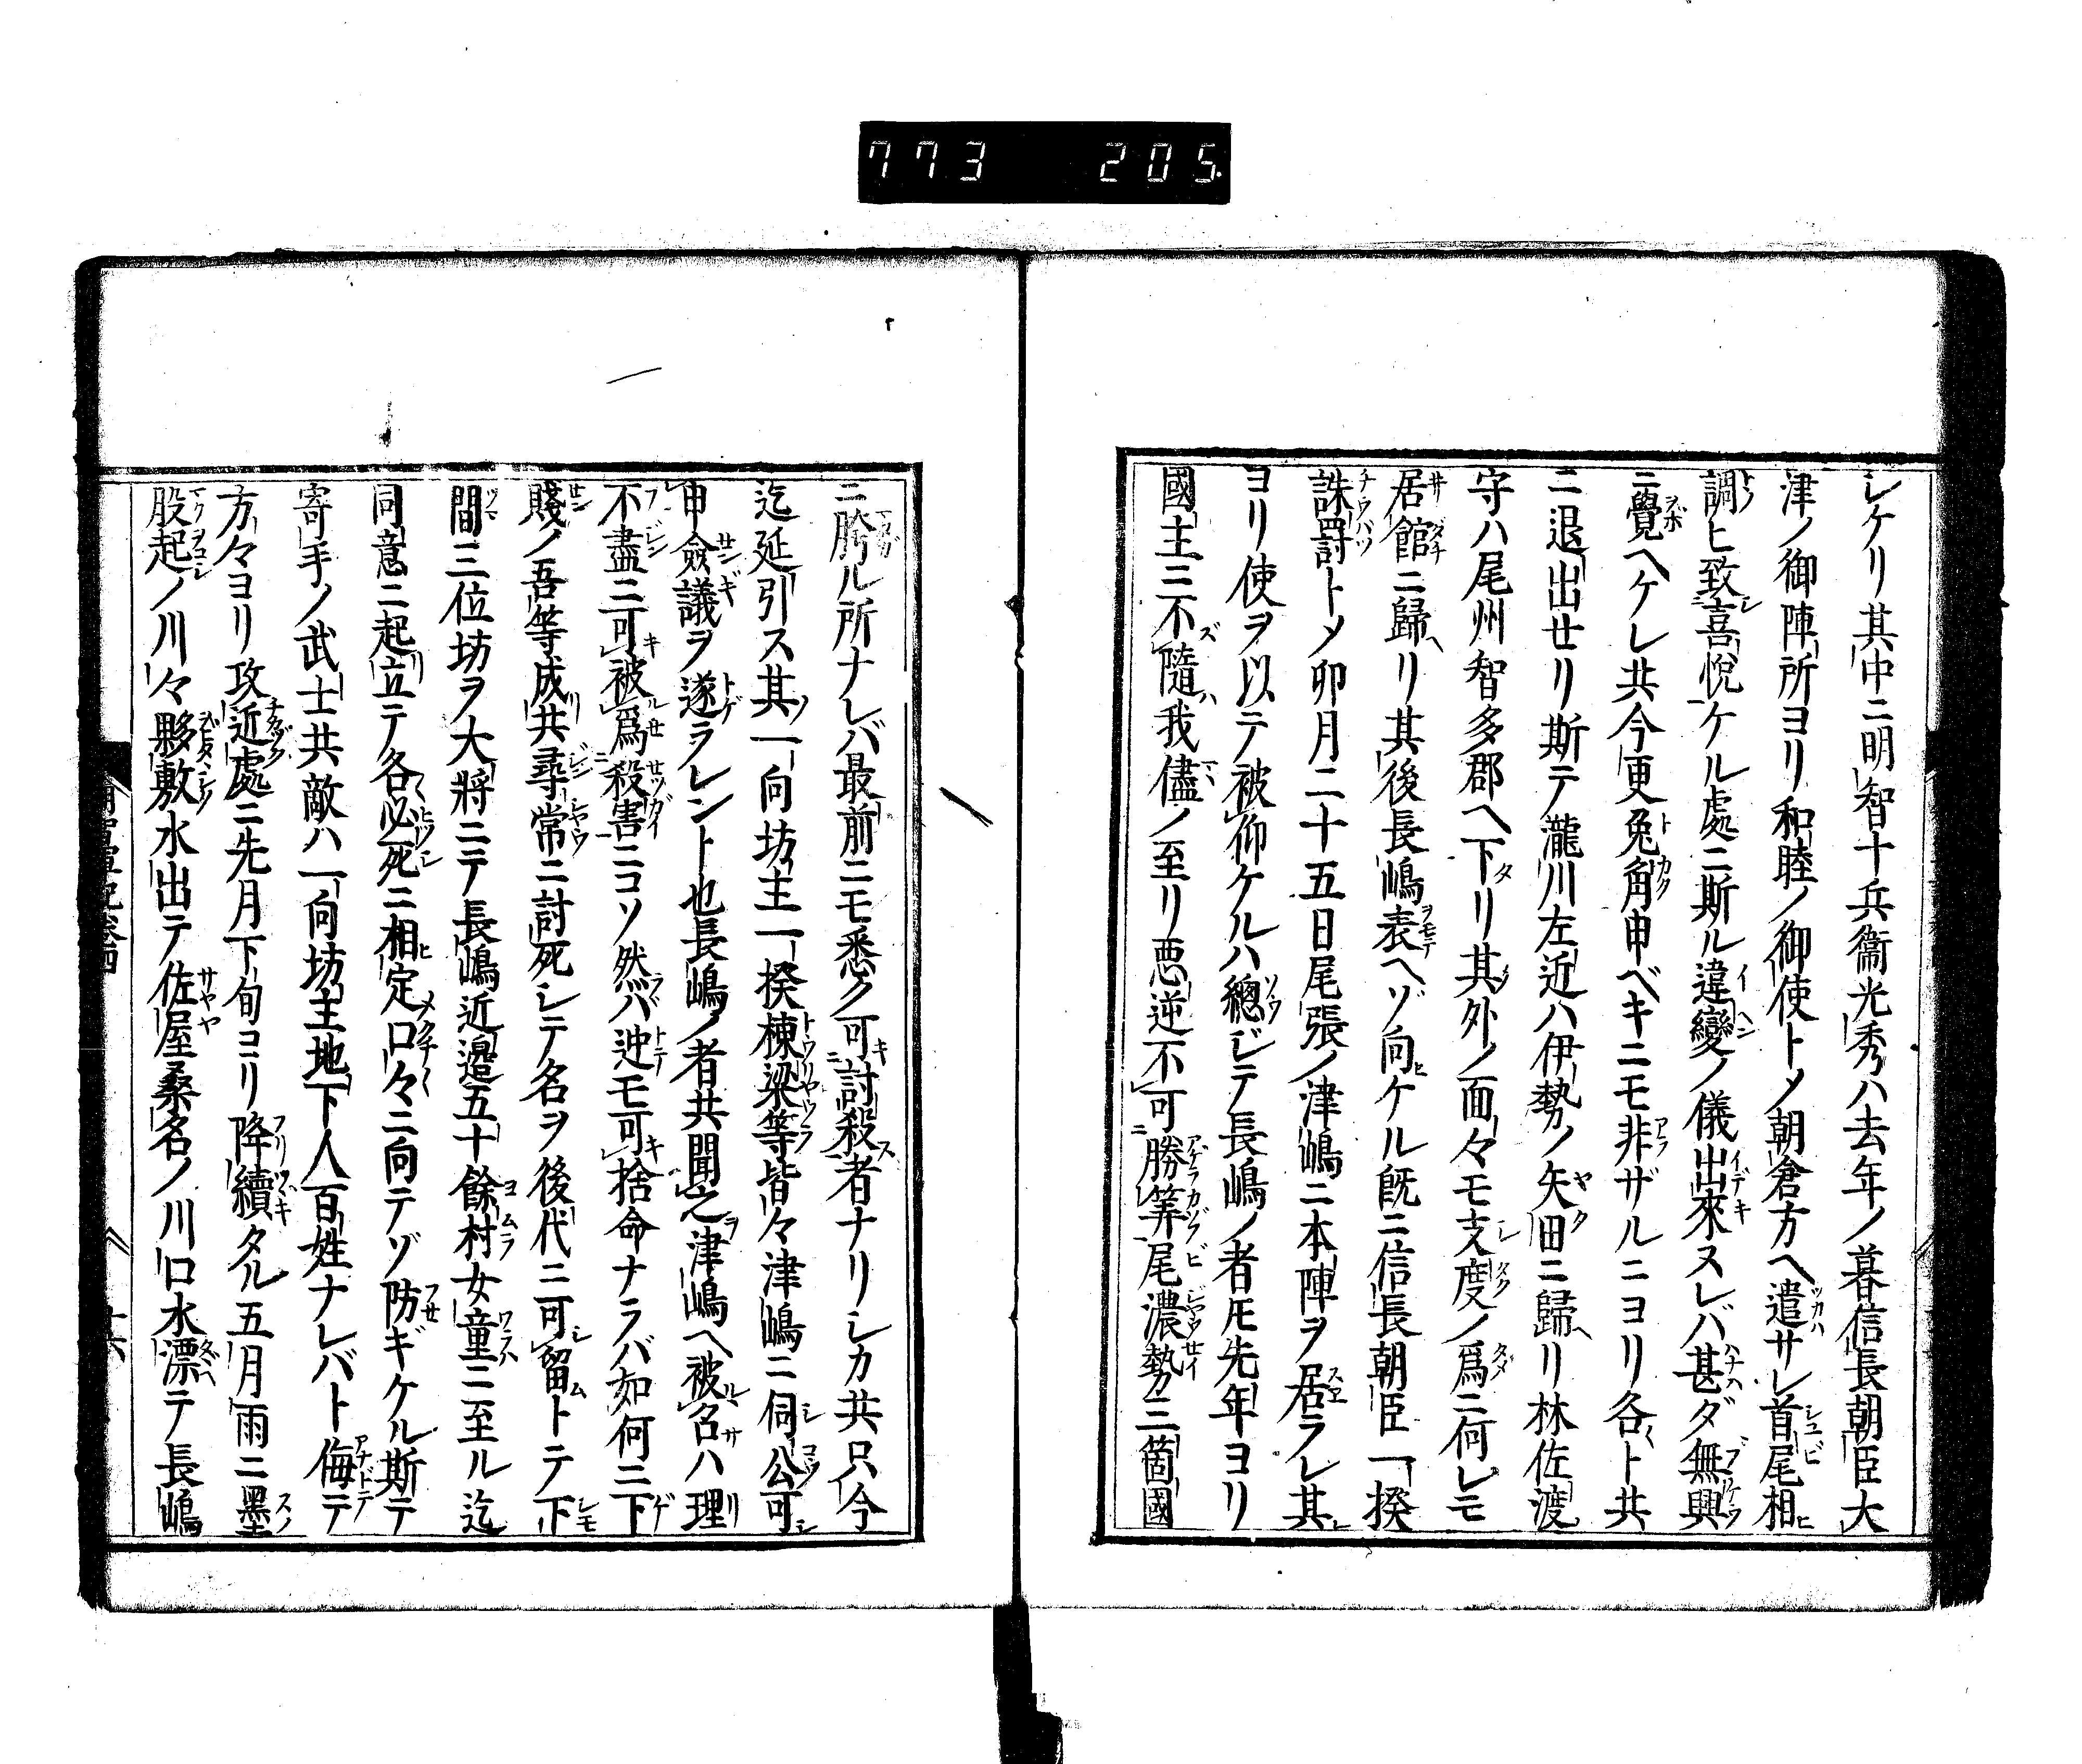 773 205
シケリ其中ニ明智十兵衞光秀ハ去年ノ暮信長朝臣大
津ノ御陣所ヨリ和睦ノ御使トメ朝倉方ヘ遣サレ首尾相
調ヒ致喜悅ケル處ニ斯ル違變ノ儀出來ヌレバ甚ダ無興
ニ覺ヘケレ共今更兔角申ベキニモ非ザルニヨリ各ト共
ニ退出せリ斯テ瀧川左近ハ伊勢ノ矢田ニ歸リ林佐渡
守ハ尾州智多郡ヘ下リ其外ノ面々モ支度ノ爲ニ何レモ
居館ニ歸リ其後長嶋表ヘゾ向ケル既ニ信長朝臣一揆
誅罸トメ卯月二十五日尾張ノ津嶋ニ本陣ヲ居ラレ其
ヨリ使ヲ以テ被仰ケルハ總ジテ長嶋ノ者𪜈先年ヨリ
國主ニ不隨我儘ノ至リ悪逆不可勝筭尾濃勢三箇國
ニ胯ル所ナレバ最前ニモ悉ク可討殺者ナリシカ共只今
迄延引ス其一向坊主一揆棟梁等皆々津嶋ニ伺公可
申僉議ヲ遂ラレント也長嶋ノ者共聞之津嶋ヘ被召ハ理
不盡ニ可被爲殺害ニコソ然バ迚モ可捨命ナラバ如何ニ下
賤ノ吾等成共尋常ニ討死シテ名ヲ後代ニ可留トテ下
間三位坊ヲ大將ニテ長嶋近邉五十餘村女童ニ至ル迄
同意ニ起立テ各必死ニ相定口々ニ向テゾ防ギケル斯テ
寄手ノ武士共敵ハ一向坊主地下人百姓ナレバト侮テ
方々ヨリ攻近處ニ先月下旬ヨリ降續タル五月雨ニ墨
股起ノ川々夥敷水出テ佐屋桑名ノ川口水漂テ長嶋